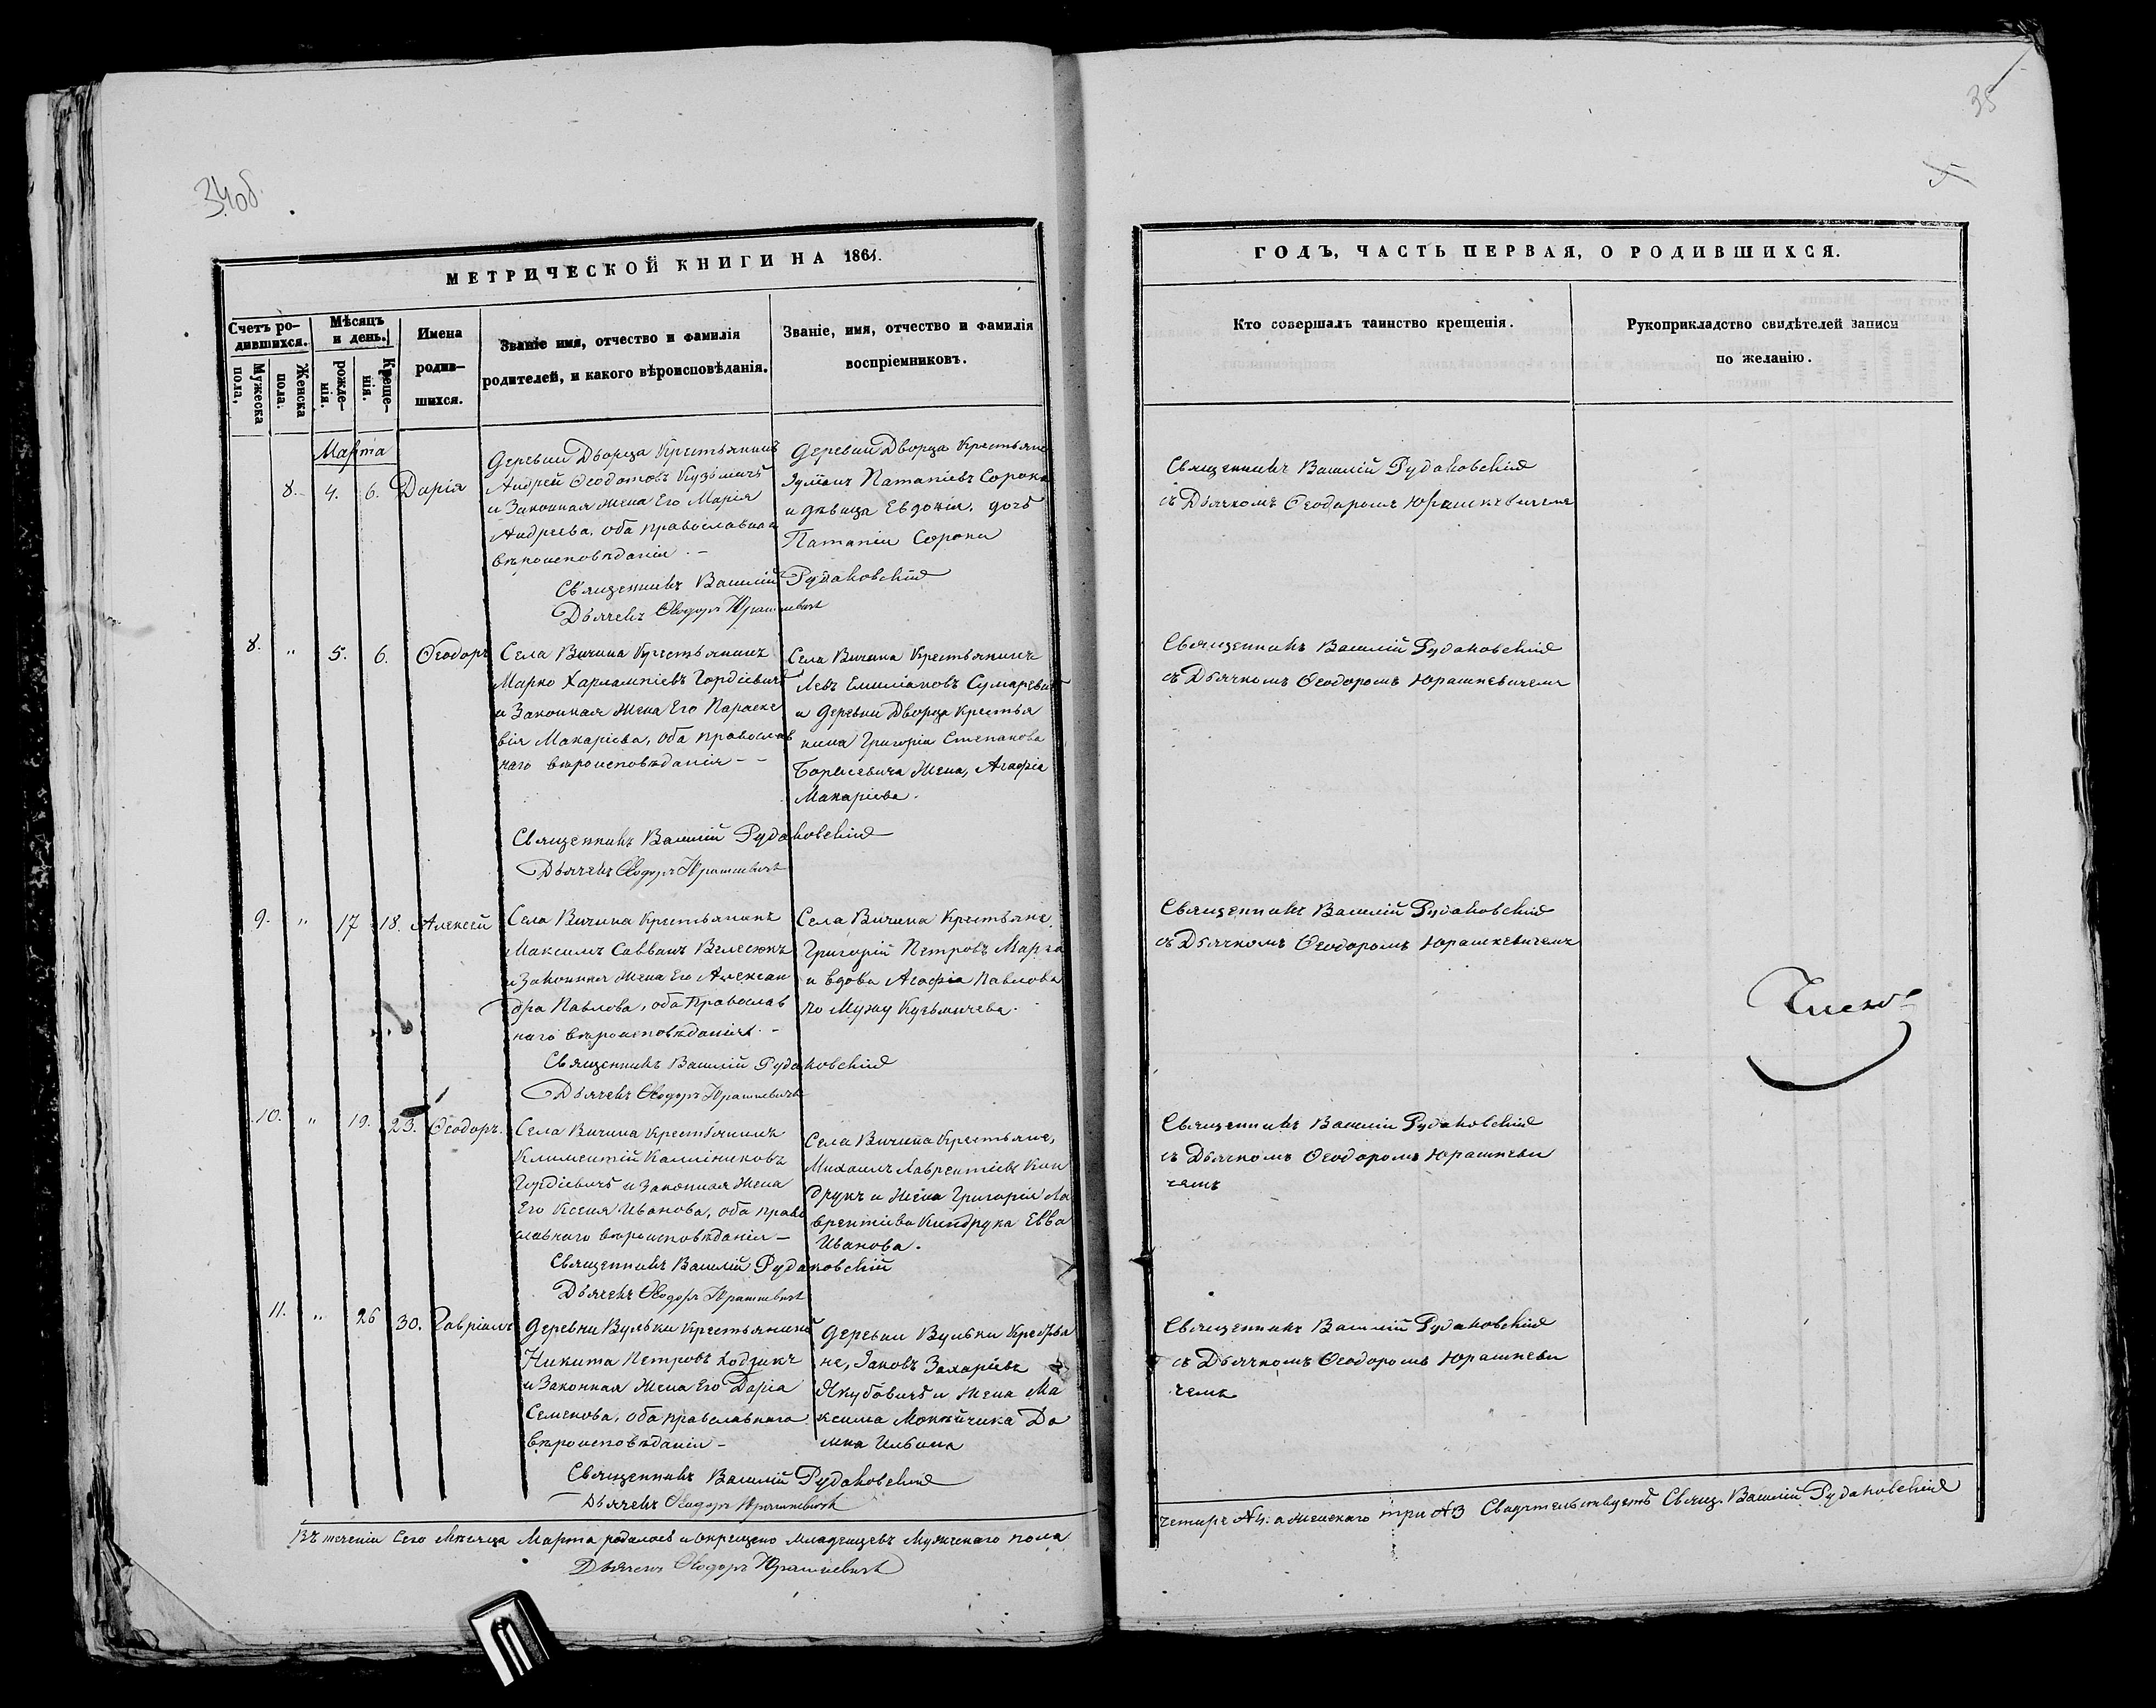 34об.
МЕТРИЧЕСКОЙ КНИГИ НА 1861.
Счетъ ро-
дившихся.
Мужеска
пола,
Женска
пола.
Мѣсяцъ
и день.
рожде-
нія.
Креще-
нія.
Имена
родив-
шихся.
Званіе имя, отчество и фамилія
родителей, и какого вѣроисповѣданія.
Званіе, имя, отчество и фамилія
воспріемниковъ.
Марта
8. 4. 6. Дарія
Деревни Дворца Крестьянинъ
Андрей Ѳеодотовъ Кузьмичъ
и Законная жена Его Марія
Андреева, оба православнаго
вѣроисповѣданія. –
Деревни Дворца Крестьяне
Патапіевъ Сорока
и дѣвица Евдокія, дочь
Патапія Сороки
Священникъ Василій Рудаковскій
Дьячекъ Ѳеодоръ Юрашкевичъ
8. " 5. 6. Ѳеодоръ
Села Вичина Крестьянинъ
Марко Харлампіевъ Гордіевичъ
и Законная жена Его Параске
вія Макаріева, оба православ
наго вѣроисповѣданія – –
Села Вичина Крестьянинъ
Левъ Емиліановъ
и деревни Дворца Крестья
нина Григорія Степанова
Борисевича жена, Агафія
Макаріева.
Священникъ Василій Рудаковскій
Дьячекъ Ѳеодоръ Юрашкевичъ
9. " 17 18. Алексей
Села Вичина Крестьянинъ
Максимъ Саввинъ Велесюкъ
и Законная жена Его Алексан
дра Павлова, оба Православ
наго вѣроисповѣданія. –
Села Вичина Крестьяне,
Григорій Петровъ
и вдова Агафія Павлова
по Мужу Кузьмичева.
Священникъ Василій Рудаковскій
Дьячекъ Ѳеодоръ Юрашкевичъ
10. " 19. 23. Ѳеодоръ.
Села Вичина Крестьянинъ
Климентій Каллиниковъ
Гордіевичъ и Законная жена
Его Ксенія Иванова, оба право
славнаго вѣроисповѣданія –
Села Вичина Крестьяне,
Михаилъ Лаврентіевъ Кон
друкъ и жена Григорія Ла
врентіева Кондрука Евва
Иванова.
Священникъ Василій Рудаковскій
Дьячекъ Ѳеодоръ Юрашкевичъ
11. " 26 30. Гавріилъ
Деревни Вульки Крестьянинъ
Никита Петровъ Ходзикъ
и Законная жена Его Дарія
Семенова, оба православнаго
вѣроисповѣданія –
Деревни Вульки Крестья
не, Іаковъ Захаріевъ
Якубовичъ и жена Ма
ксима Мокейчика До
мна Ильина
Священникъ Василій Рудаковскій
Дьячекъ Ѳеодоръ Юрашкевичъ
Въ теченіи Сего Мѣсяца Марта родилось и окрещено младенцевъ Мужескаго пола
Дьячекъ Ѳеодоръ Юрашкевичъ
35
ГОДЪ, ЧАСТЬ ПЕРВАЯ, О РОДИВШИХСЯ.
Кто совершалъ таинство крещенія.
Рукоприкладство свидѣтелей записи
по желанію.
Священникъ Василій Рудаковскій
съ Дьячкомъ Ѳеодоромъ Юрашкевичемъ
Священникъ Василій Рудаковскій
съ Дьячкомъ Ѳеодоромъ Юрашкевичемъ
Священникъ Василій Рудаковскій
съ Дьячкомъ Ѳеодоромъ Юрашкевичемъ
Священникъ Василій Рудаковскій
съ Дьячкомъ Ѳеодоромъ Юрашкеви
чемъ
Священникъ Василій Рудаковскій
съ Дьячкомъ Ѳеодоромъ Юрашкеви
чемъ
четыре №4. а женскаго три №3 Свидѣтельствуетъ Свящ. Василій Рудаковскій